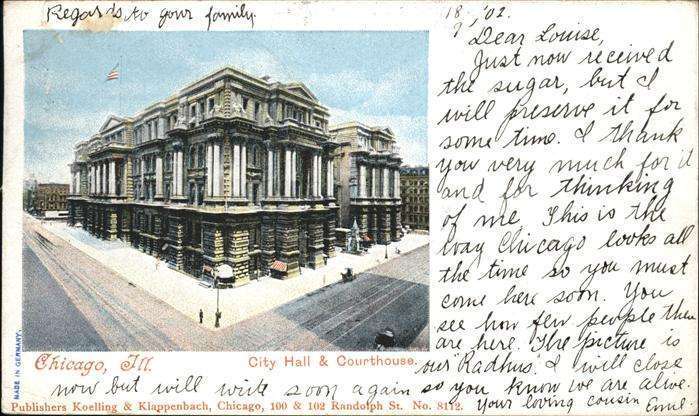 Regards to your family.
18/9, '02.
Dear Louise,
Just now received
the sugar, but I
will preserve it for
some time. I thank
you very much for it
and for thinking
of me. This is the
way Chicago looks all
the time so you must
come here soon. You
see how few people there
are here. The picture is
our Radhus. I will close
now but will write soon again so you know we are alive.
Your loving cousin Emil.
Chicago, Ill.
City Hall & Courthouse.
MADE IN GERMANY.
Publishers Koelling & Klappenbach, Chicago, 100 & 102 Randolph St. No. 8172.